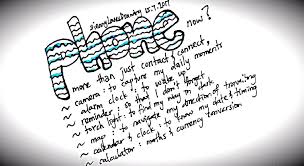 jianglovesdrawing 25.7.2017
phone now?
more than just contact, connect,
~ camera : to capture my daily moments
~ alarm clock : to wake up
~ reminder : so that I don't forget
~ torch light : to find my way in dark
~ map : to navigate my direction of travelling
~ calendar & clock : to know my date & timing
~ calculator : maths & currency conversion